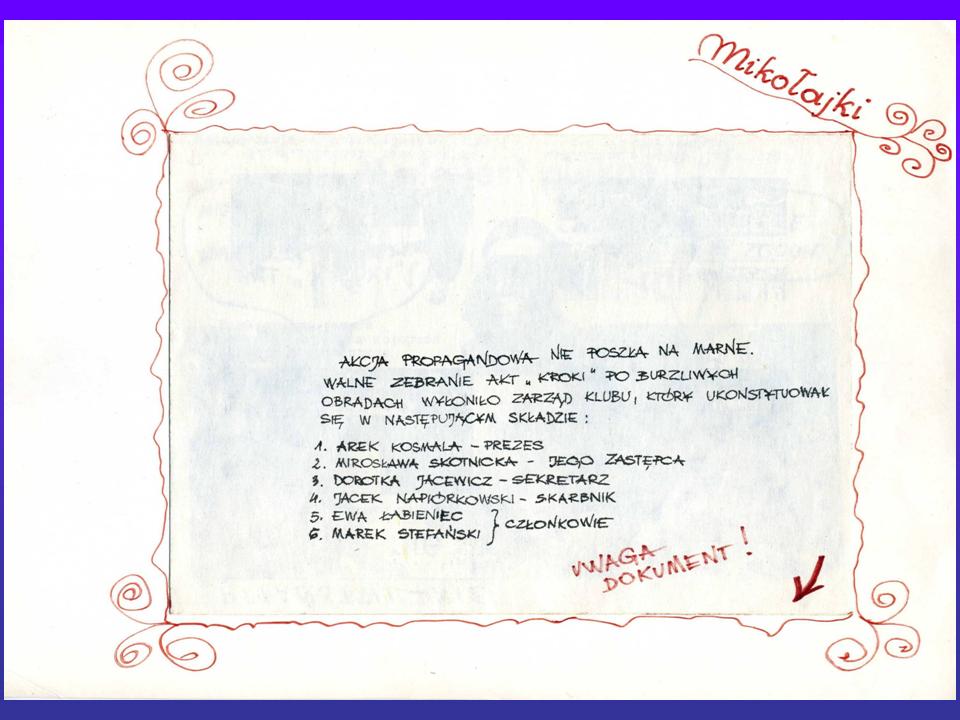 Mikołajki
AKCJA PROPAGANDOWA NIE POSZŁA NA MARNE.
WALNE ZEBRANIE AKT „KROKI" PO BURZLIWYCH
OBRADACH WYŁONIŁO ZARZĄD KLUBU, KTÓRY UKONSTYTUOWAŁ
SIĘ W NASTĘPUJĄCYM SKŁADZIE :
1. AREK KOSMALA – PREZES
2. MIROSŁAWA SKOTNICKA – JEGO ZASTĘPCA
3. DOROTKA JACEWICZ – SEKRETARZ
4. JACEK NAPIÓRKOWSKI – SKARBNIK
5. EWA ŁABIENIEC
6. MAREK STEFAŃSKI } CZŁONKOWIE
UWAGA
DOKUMENT !